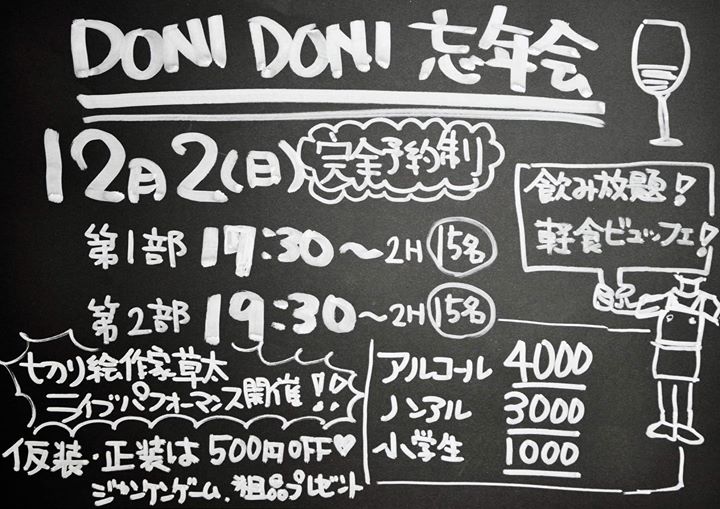 DONI DONI 忘年会
12月2(日) 完全予約制
飲み放題!
軽食ビュッフェ!
第1部 17:30～2H 15名
第2部 19:30～2H 15名
切り絵作家草太
ライブパフォーマンス開催!!
仮装・正装は500円OFF♥
ジャンケンゲーム、粗品プレゼント
アルコール 4000
ノンアル 3000
小学生 1000